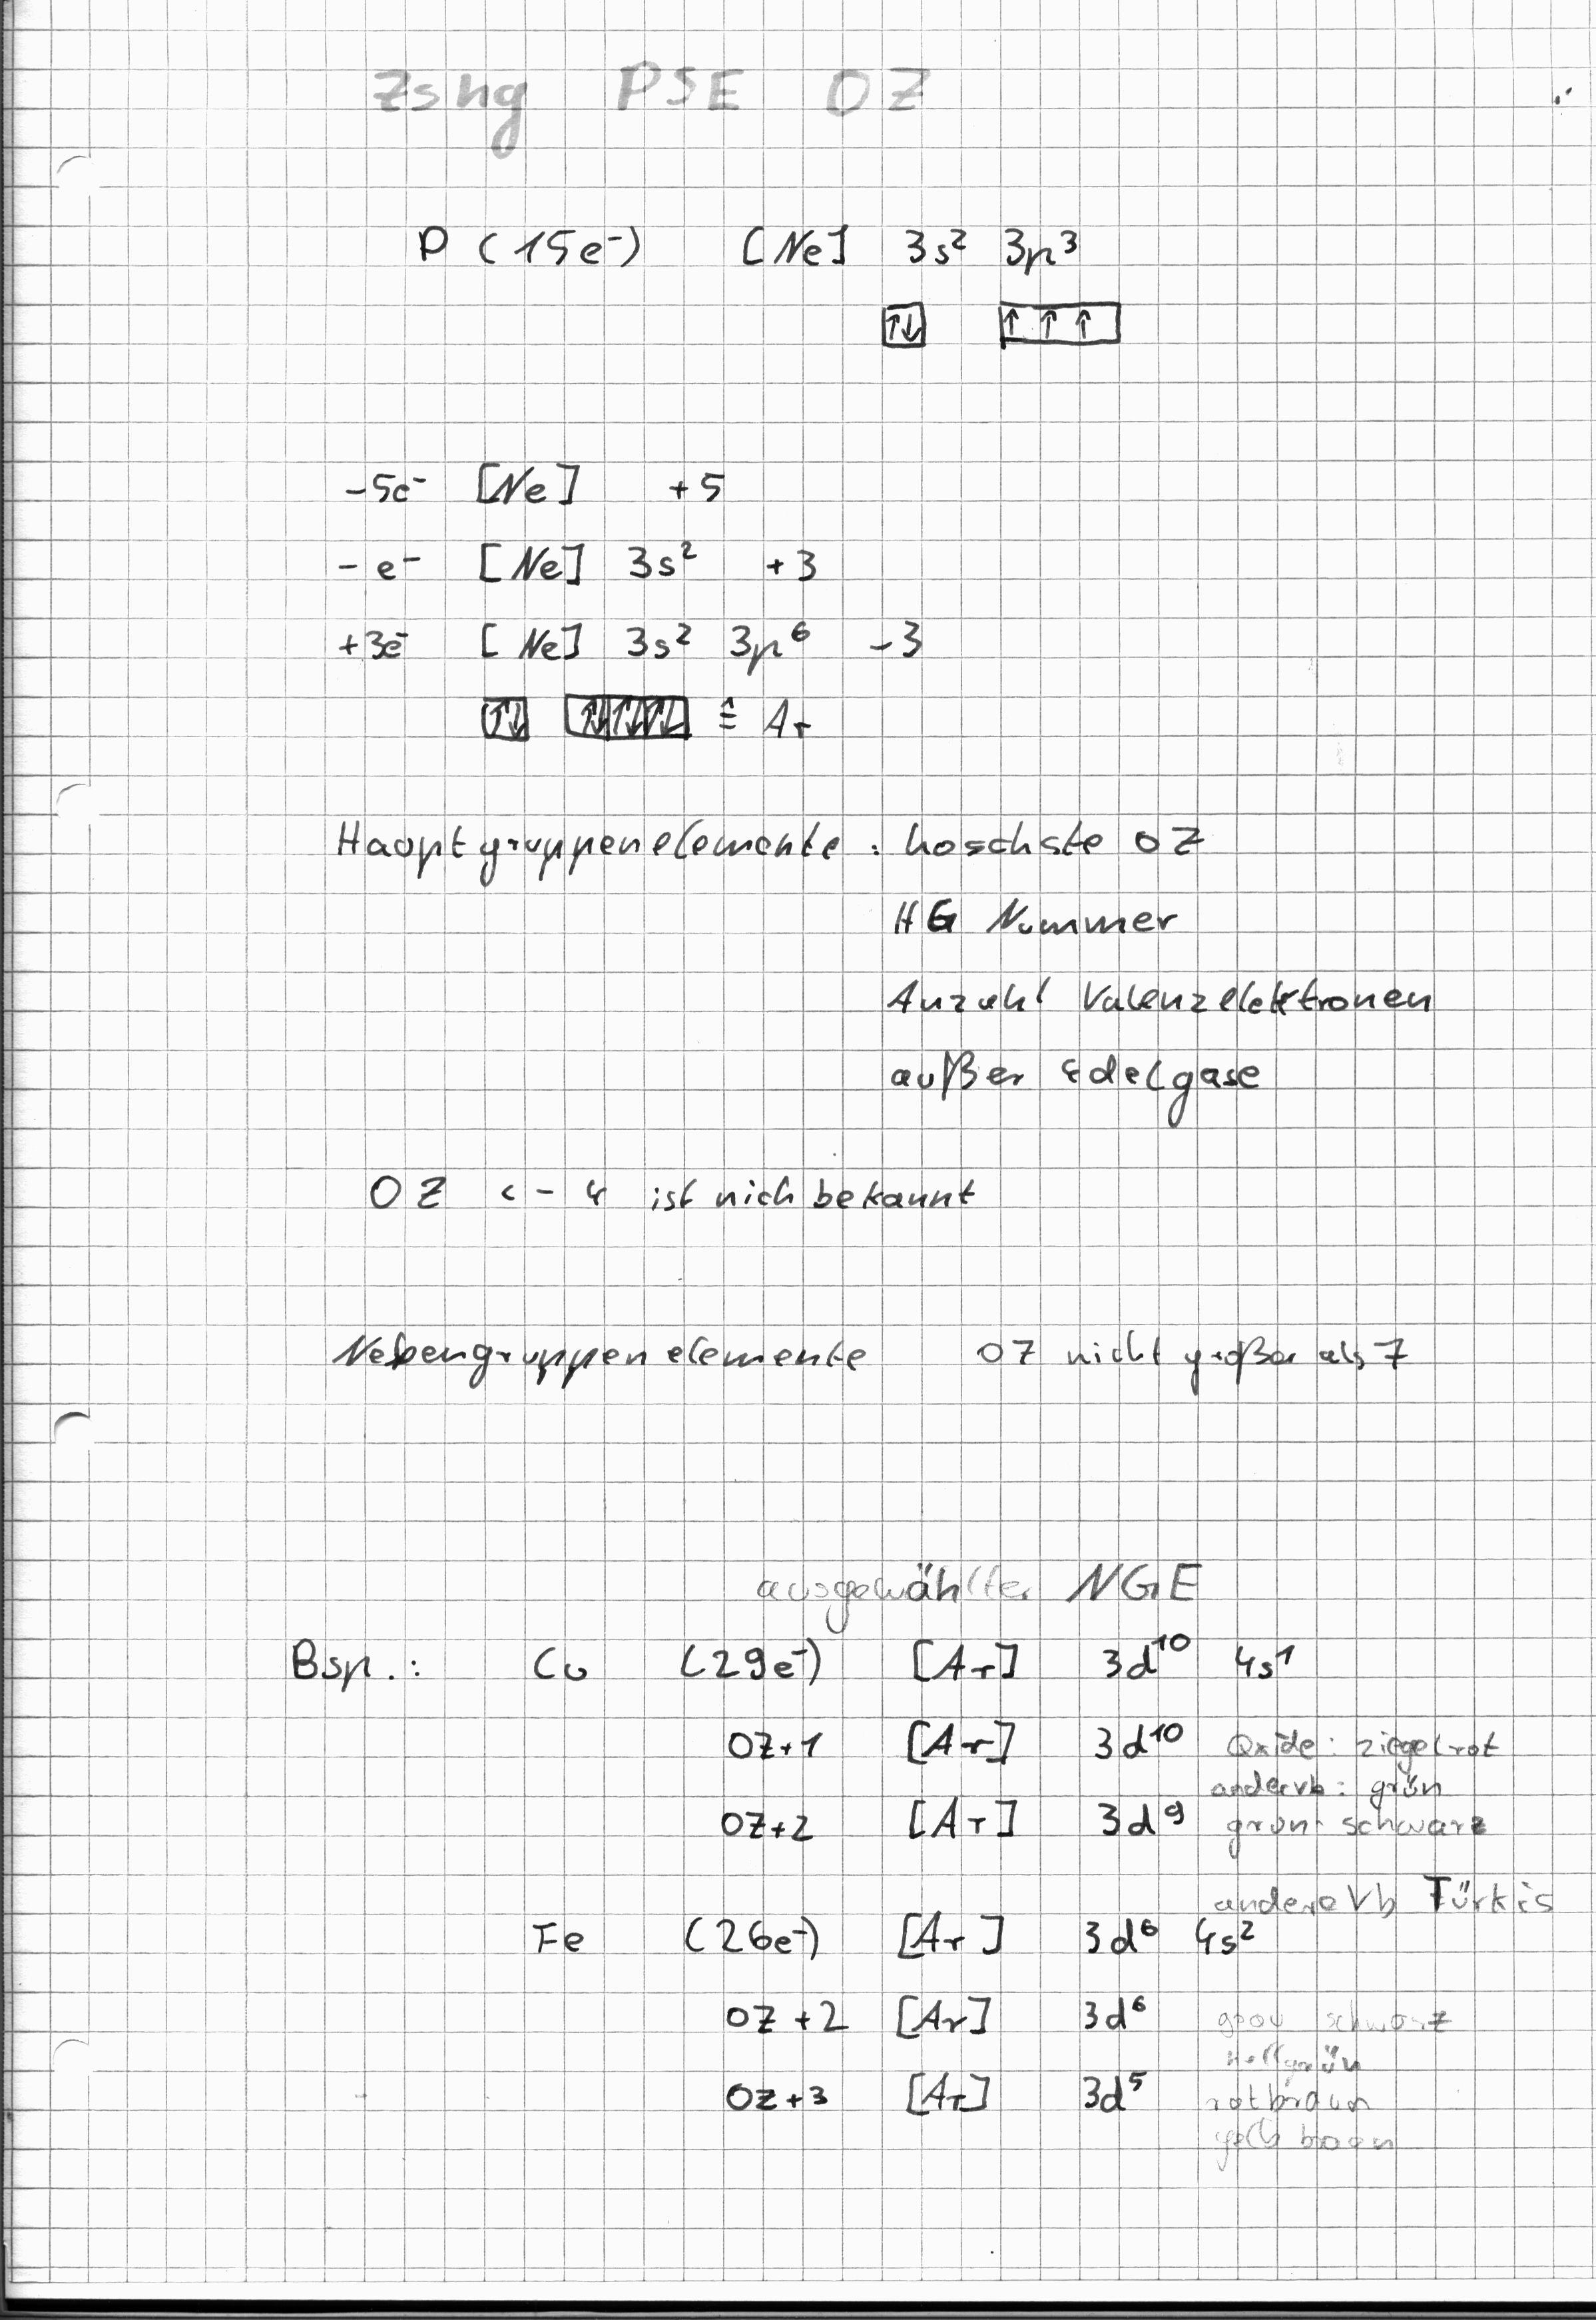 Zshg PSE OZ
P (15e⁻) [Ne] 3s² 3p³
↑↓ ↑ ↑ ↑
-5e⁻ [Ne] +5
-e⁻ [Ne] 3s² +3
+3e⁻ [Ne] 3s² 3p⁶ -3
↑↓ ↑↓ ↑↓ ↑↓ ≙ Ar
Hauptgruppenelemente : hoechste OZ
HG Nummer
Anzahl Valenzelektronen
außer Edelgase
OZ < -4 ist nich bekannt
Nebengruppenelemente OZ nicht größer als 7
ausgewählter NGE
Bsp.: Cu (29e⁻) [Ar] 3d¹⁰ 4s¹
OZ+1 [Ar] 3d¹⁰ Oxide: ziegelrot
andervb: grün
OZ+2 [Ar] 3d⁹ grün schwarz
andere Vb Türkis
Fe (26e⁻) [Ar] 3d⁶ 4s²
OZ +2 [Ar] 3d⁶ grau schwarz
hellgrün
OZ+3 [Ar] 3d⁵ rotbraun
gelb braun